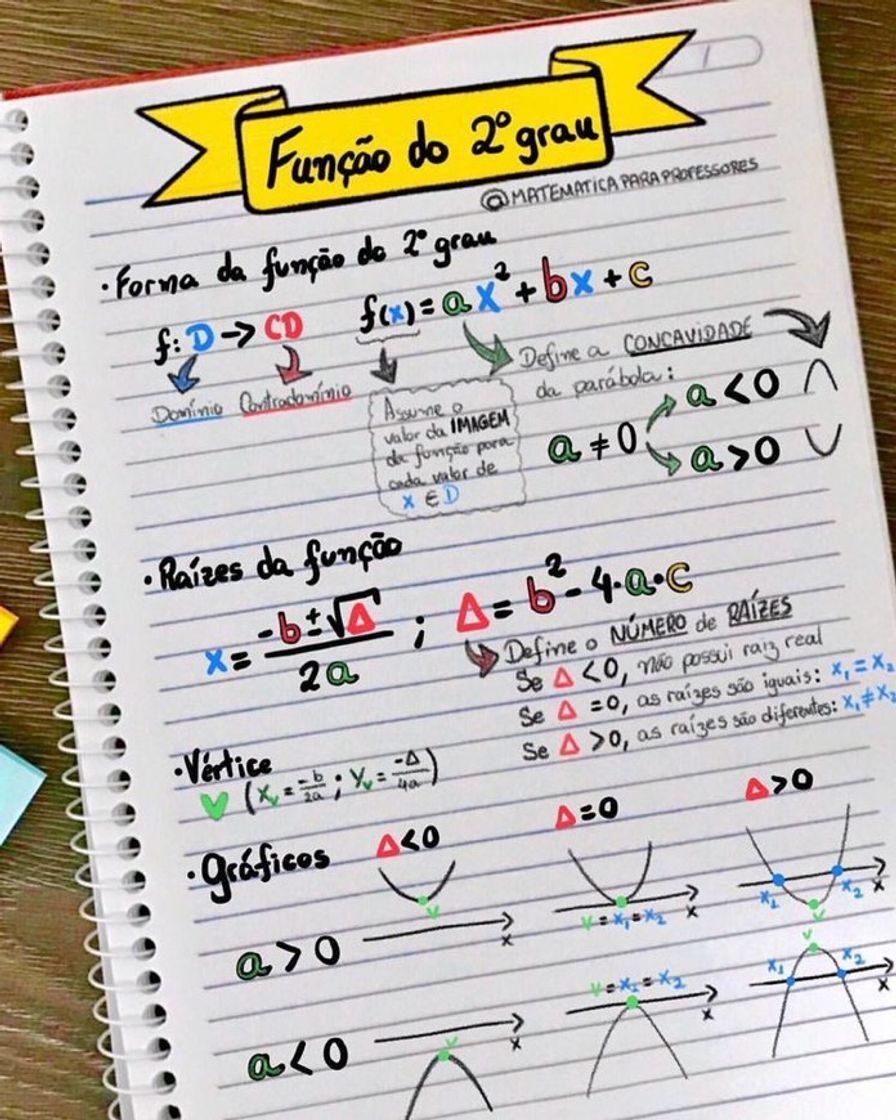 Função do 2º grau
@MATEMATICAPARAPROFESSORES
·Forma da função do 2º grau
f: D → CD
f(x) = ax² + bx + c
Domínio Contradomínio
Assume o
valor da IMAGEM
da função para
cada valor de
x ∈ D
Define a CONCAVIDADE
da parábola:
a ≠ 0
a < 0
a > 0
·Raízes da função
x = -b ± √Δ / 2a ; Δ = b² - 4·a·c
Define o NÚMERO de RAÍZES
Se Δ < 0, não possui raiz real
Se Δ = 0, as raízes são iguais: x₁ = x₂
Se Δ > 0, as raízes são diferentes: x₁ ≠ x₂
·Vértice
V (Xv = -b/2a ; Yv = -Δ/4a)
·Gráficos
Δ < 0
Δ = 0
Δ > 0
a > 0
V
x
V = x₁ = x₂
x
x₁
V
x₂
x
a < 0
V
x
V = x₁ = x₂
x
x₁
V
x₂
x